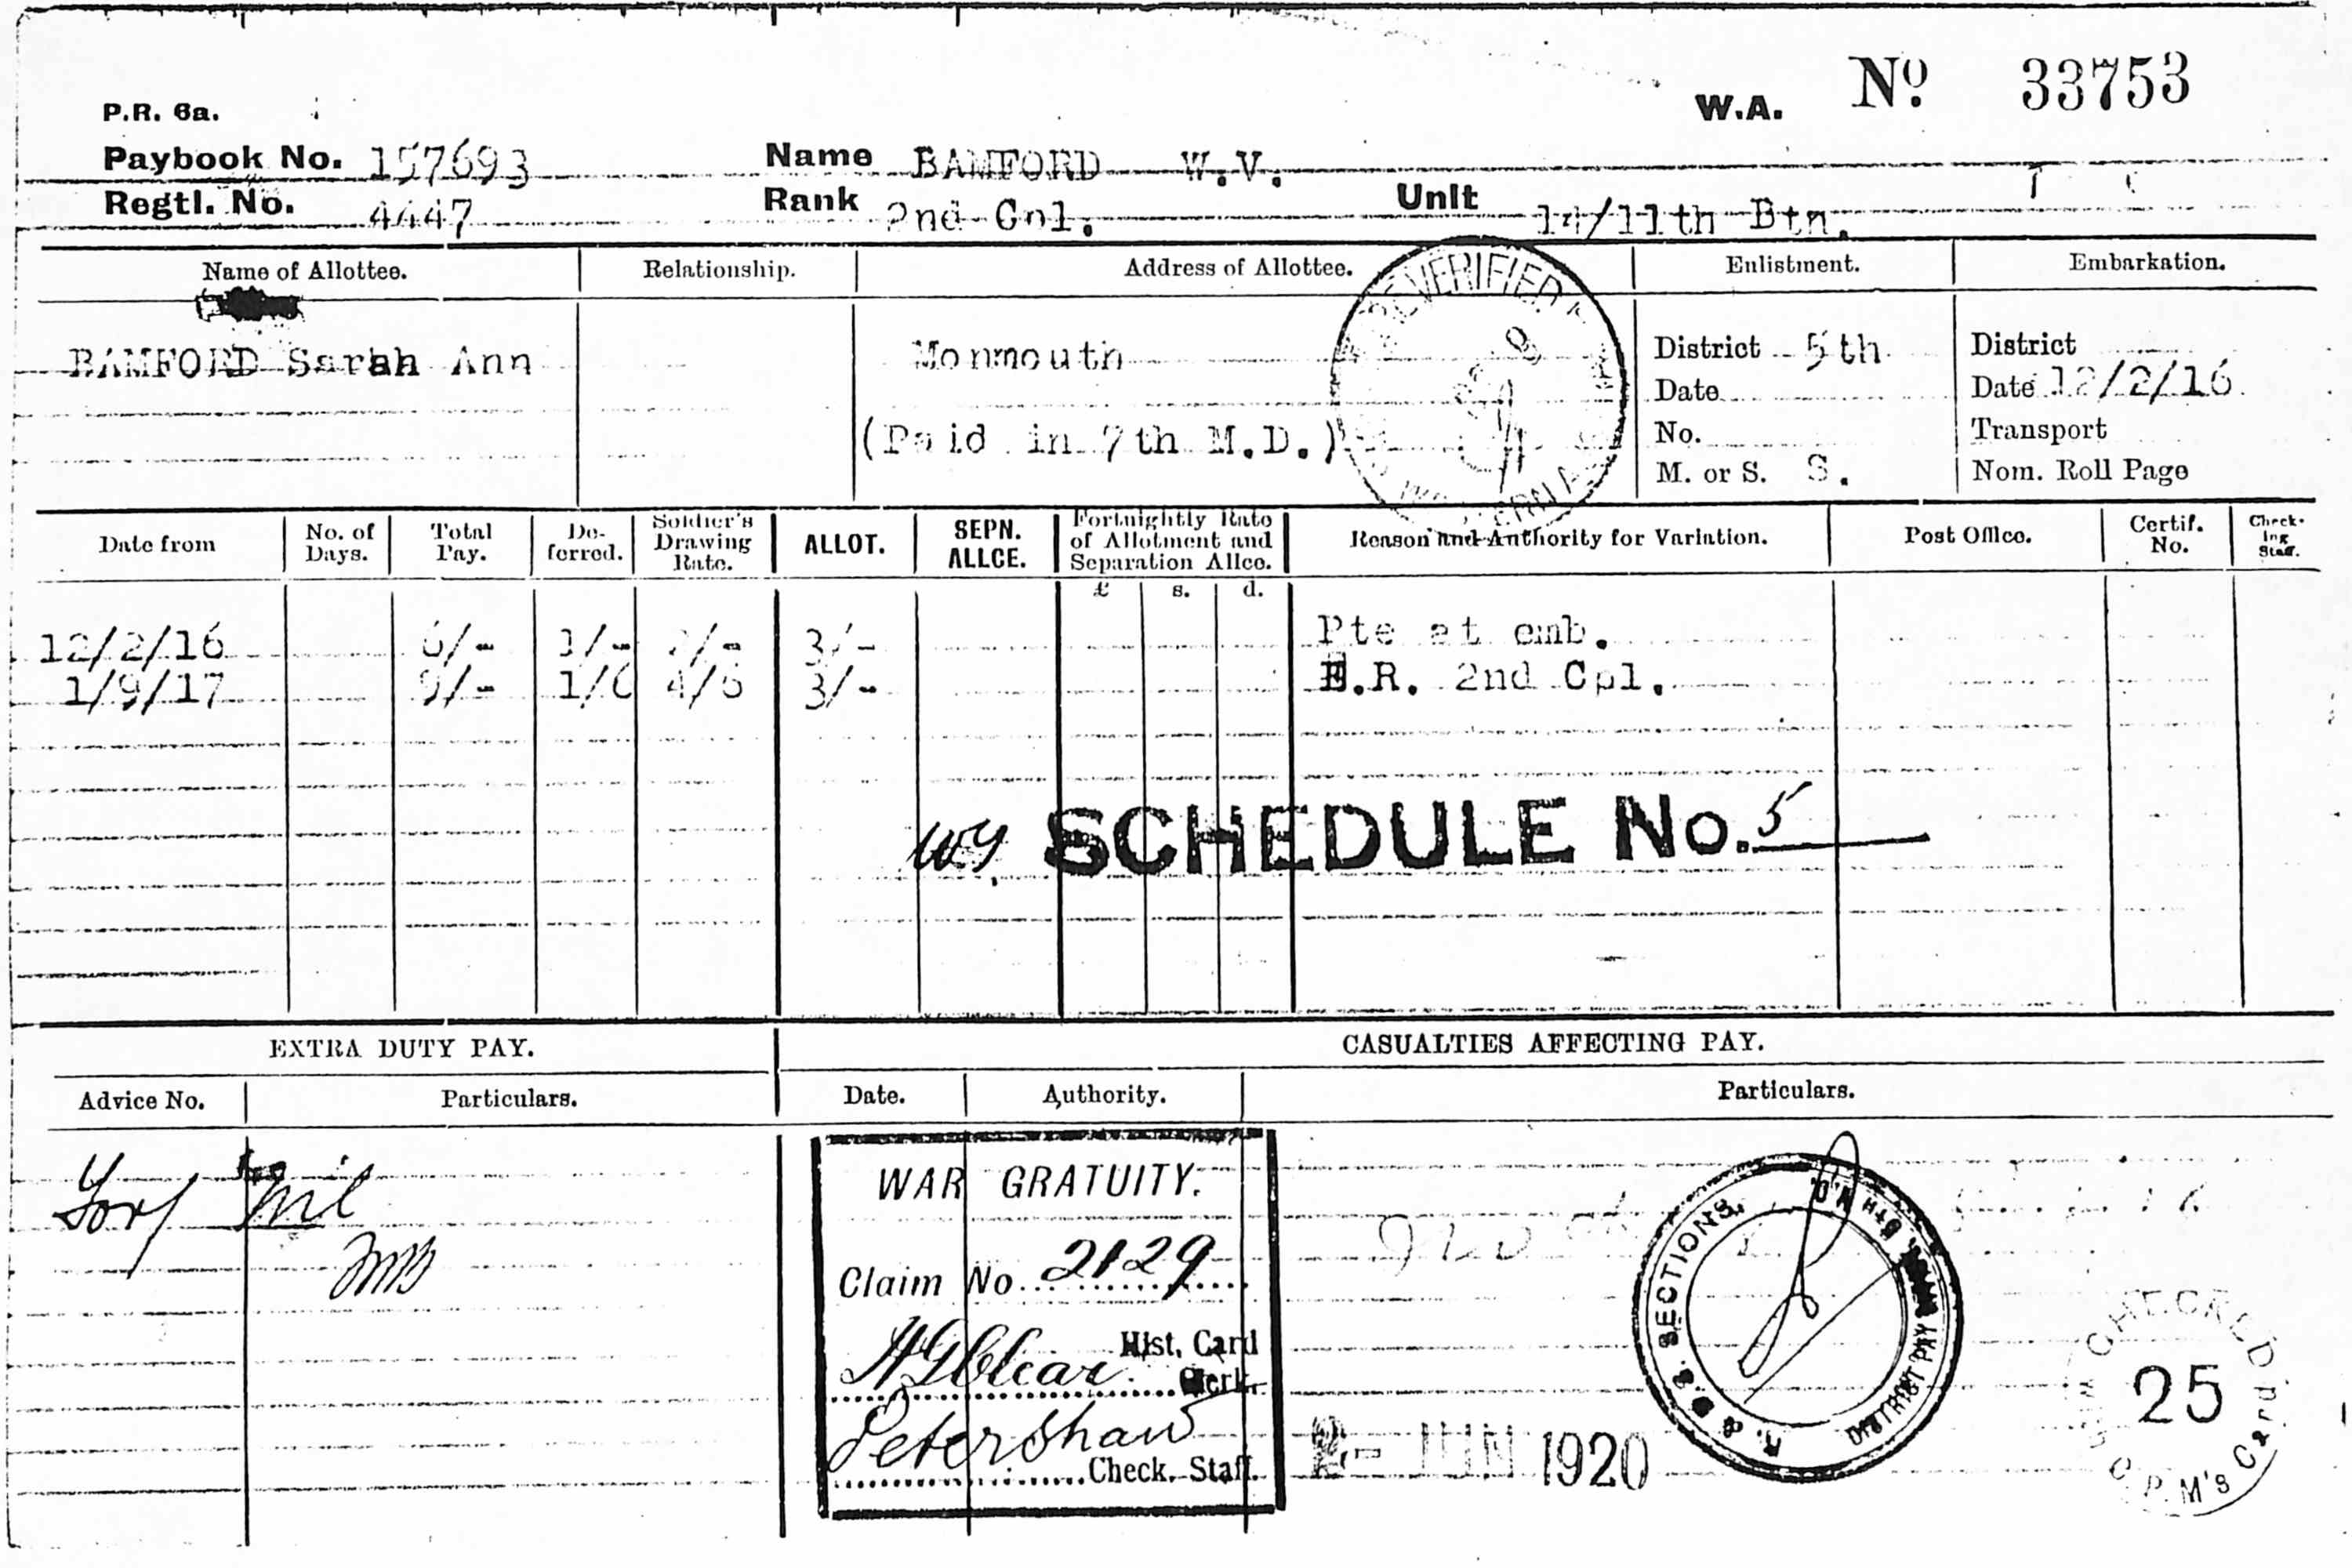 P.R. 6a.
W.A. Nº 33753
Paybook No. 157693 Name BAMFORD W.V.
Regtl. No. 4447 Rank 2nd Cpl. Unit 14/11th Btn.
Name of Allottee. Relationship. Address of Allottee. Enlistment. Embarkation.
BAMFORD Sarah Ann
Monmouth
(Paid in 7th M.D.)
VERIFIED
District 5th
Date
No.
M. or S. S.
District
Date 12/2/16
Transport
Nom. Roll Page
Date from No. of Days. Total Pay. Deferred. Soldier's Drawing Rate. ALLOT. SEPN. ALLCE. Fortnightly Rate of Allotment and Separation Allce. Reason and Authority for Variation. Post Office. Certif. No. Checking Staff.
£ s. d.
12/2/16 6/- 1/- 2/- 3/- Pte at emb.
1/9/17 9/- 1/6 4/6 3/- E.R. 2nd Cpl.
SCHEDULE No. 5
EXTRA DUTY PAY. CASUALTIES AFFECTING PAY.
Advice No. Particulars. Date. Authority. Particulars.
Nil
WAR GRATUITY.
Claim No 2129
Hist. Card
Clerk.
Peter Shaw
Check. Staff.
2 - JUN 1920
SECTIONS,
DISTRICT PAY
CHECKED
25
C.P.M's Card